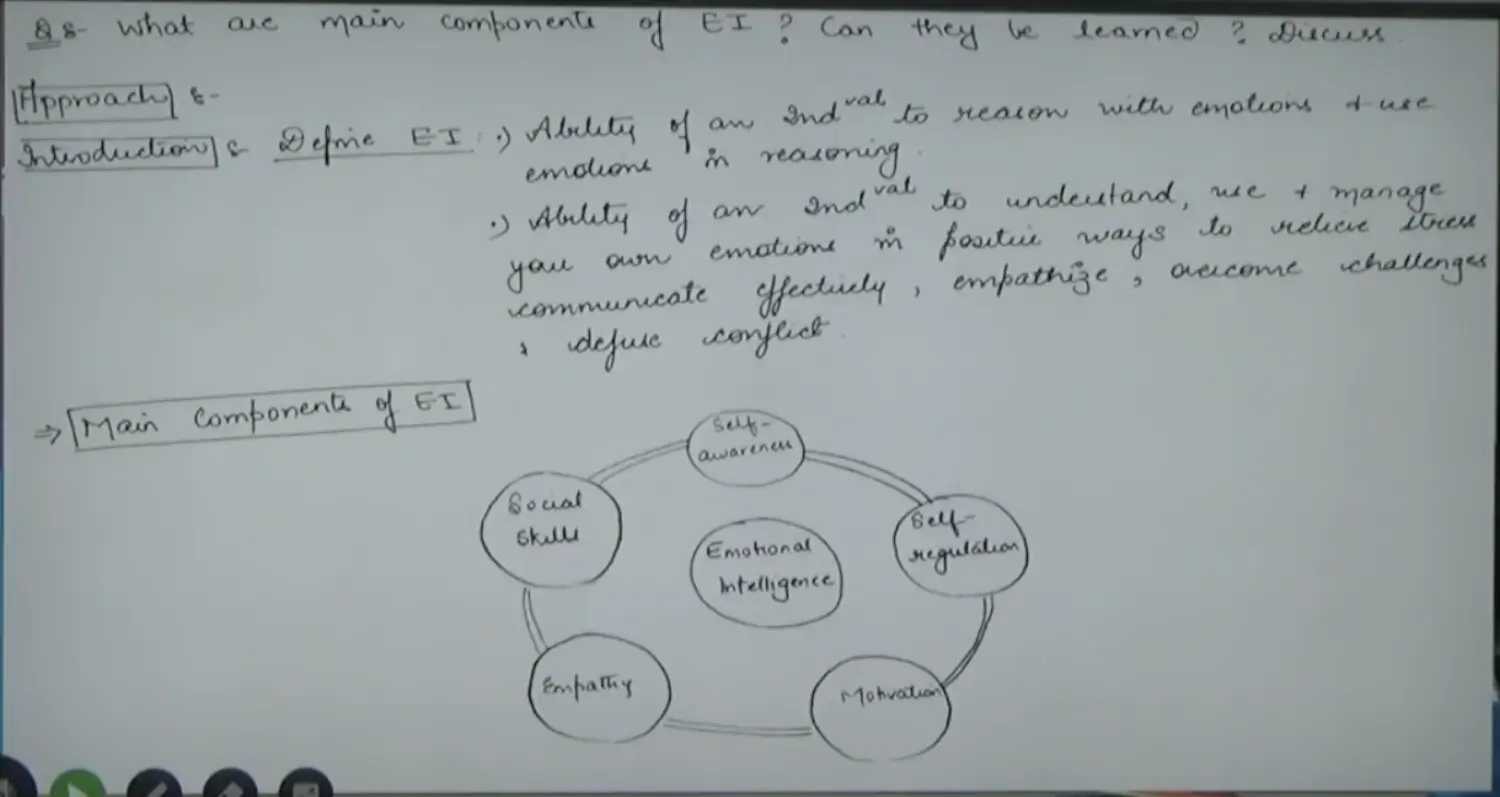 Q:- What are main components of EI ? Can they be learned ? Discuss.
Approach :-
Introduction : Define EI :
·) Ability of an Ind^val to reason with emotions + use
emotions in reasoning.
·) Ability of an Ind^val to understand, use + manage
your own emotions in positive ways to relieve stress
communicate effectively, empathize, overcome challenges
, defuse conflict.
⇒ Main Components of EI
Self-
awareness
Social
Skills
Self-
regulation
Emotional
Intelligence
Empathy
Motivation